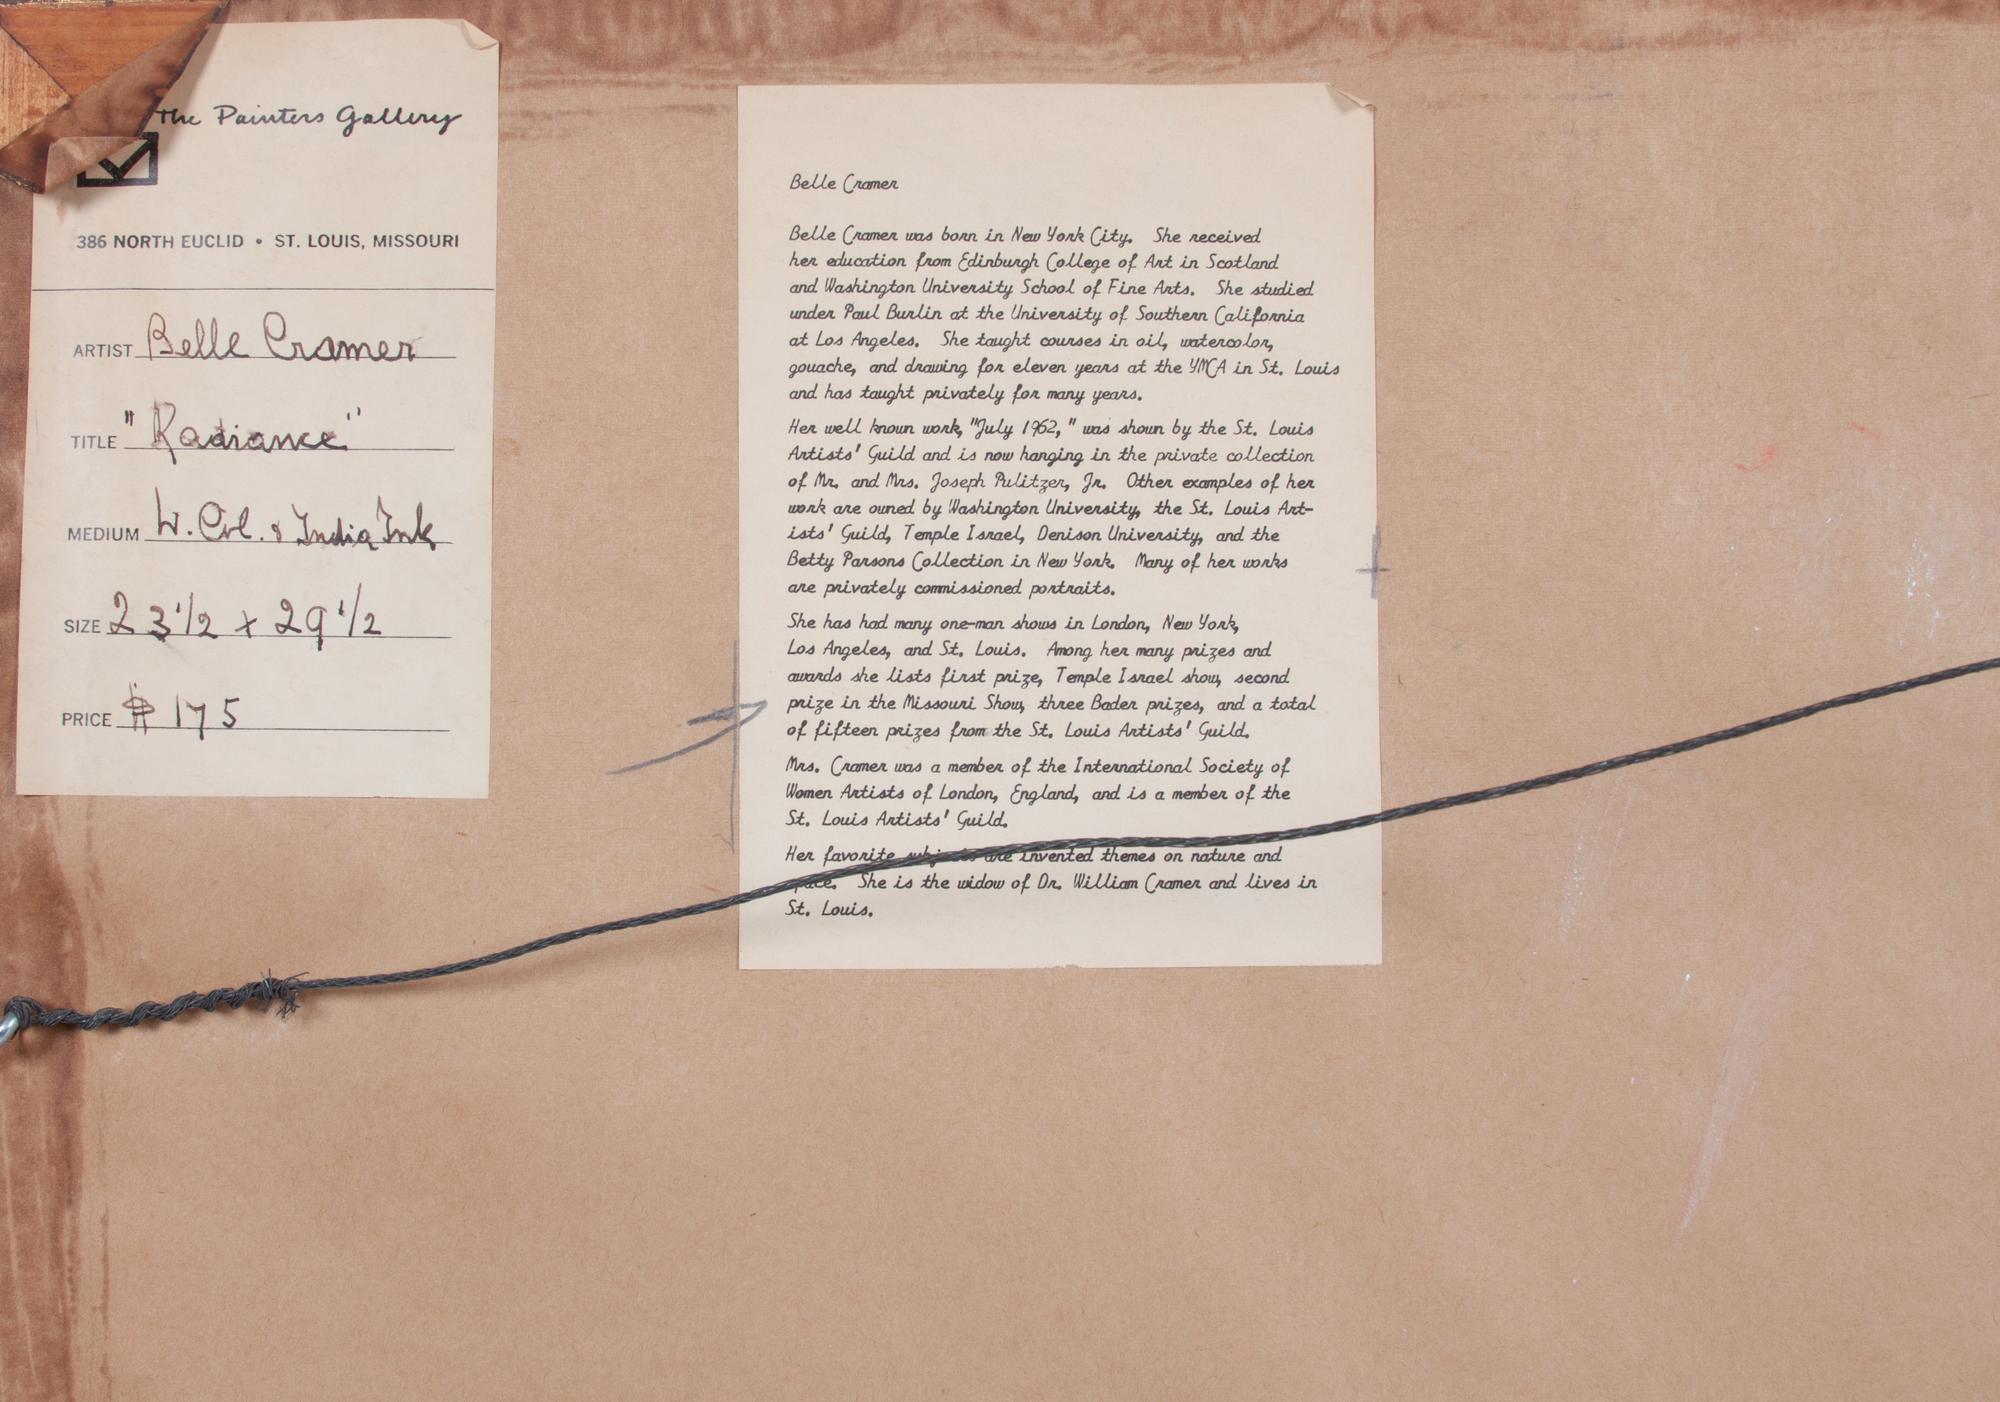 The Painters Gallery
386 NORTH EUCLID • ST. LOUIS, MISSOURI
ARTIST Belle Cramer
TITLE "Radiance"
MEDIUM W. Col. & India Ink
SIZE 23 1/2 x 29 1/2
PRICE $175
Belle Cramer
Belle Cramer was born in New York City. She received
her education from Edinburgh College of Art in Scotland
and Washington University School of Fine Arts. She studied
under Paul Burlin at the University of Southern California
at Los Angeles. She taught courses in oil, watercolor,
gouache, and drawing for eleven years at the YMCA in St. Louis
and has taught privately for many years.
Her well known work, "July 1962," was shown by the St. Louis
Artists' Guild and is now hanging in the private collection
of Mr. and Mrs. Joseph Pulitzer, Jr. Other examples of her
work are owned by Washington University, the St. Louis Art-
ists' Guild, Temple Israel, Denison University, and the
Betty Parsons Collection in New York. Many of her works
are privately commissioned portraits.
She has had many one-man shows in London, New York,
Los Angeles, and St. Louis. Among her many prizes and
awards she lists first prize, Temple Israel show, second
prize in the Missouri Show, three Bader prizes, and a total
of fifteen prizes from the St. Louis Artists' Guild.
Mrs. Cramer was a member of the International Society of
Women Artists of London, England, and is a member of the
St. Louis Artists' Guild.
Her favorite subjects are invented themes on nature and
She is the widow of Dr. William Cramer and lives in
St. Louis.